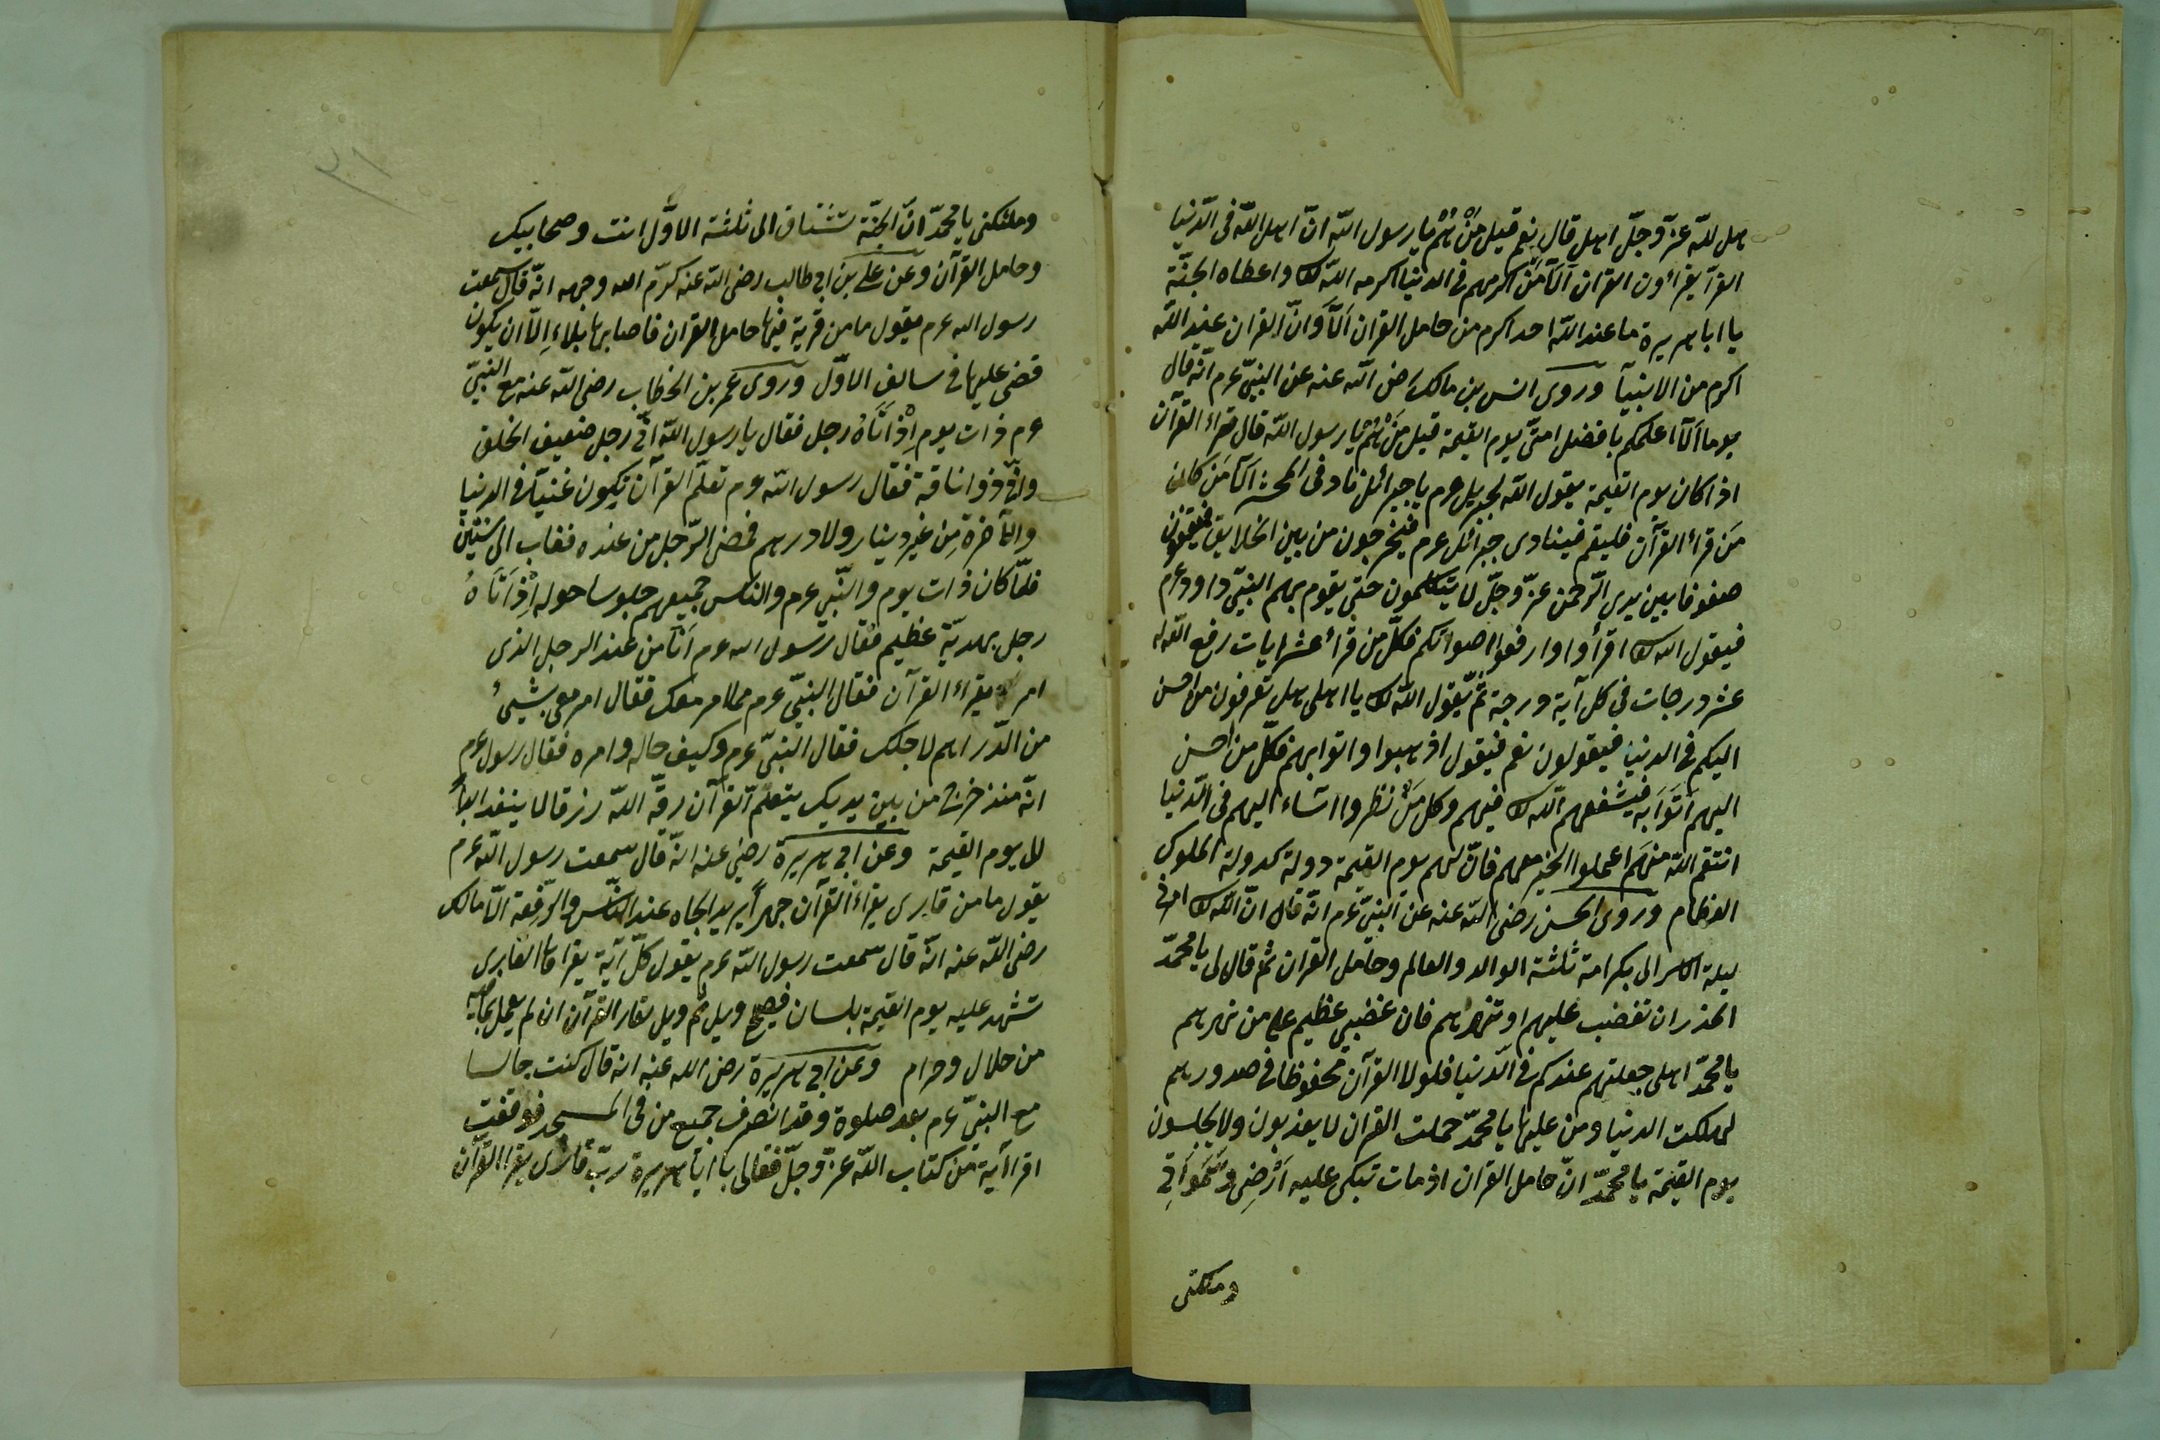 هل لله عزّ وجلّ اهل قال نعم قيل مَنْ هُمْ يا رسول اللّه انّ اهل اللّه فى الدّنيا
يقرأون القران اَلَا مَنْ اكرمهم فى الدنيا اكرمه اللّه واعطاه الجنّة
يا ابا هريرة ما عند اللّه احد اكرم من حامل القران اَلَا وَانّ القران عند اللّه
اكرم من الانبيآ وروى انس بن مالك رضى اللّه عنه عن النبىّ عم انّه قال
يوما اَلَا اعلمكم بافضل امتى يوم القيمة قيل مَنْ هُمْ يا رسول اللّه قال قراء القرآن
اذا كان يوم القيمة يقول اللّه لجبريل عم يا جبرائل ناد فى المحشر اَلَا مَن كان
مَن قراء القرآن فليقم فينادى جبرائل عم فيخرجون من بين الخلايق فيقفون
صفوفا بين يدى الرّحمن عزّ وجلّ لا يتكلمون حتى يقوم بهم النبىّ داود عم
فيقول اللّه اقرأوا وارفعوا اصواتكم فكلّ من قراء عشر ايات رفع اللّه له
عشر درجات فى كل آية درجة ثمّ يقول اللّه يا اهلى هل تعرفون من احسن
اليكم فى الدنيا فيقولون نعم فيقول اذهبوا واتوا بهم فكلّ من احسن
اليهم اَتَوا به فيشفعهم اللّه فيهم وكل مَنْ نظروا اساء اليهم فى الدّنيا
انتقم اللّه منهم اعملوا الخير معهم فانّ لهم يوم القيمة دولة كدولة الملوك
العظام وروى الحسن رضى اللّه عنه عن النبىّ عم انّه قال انّ اللّه امرنى
ليلة الاسرالى بكرامة ثلثة الوالد والعالم وحامل القران ثم قال لى يا محمّد
احذر ان تغضب عليهم او تنهراهم فان غضبى عظيم على من نهرهم
يا محمّد اهلى جعلتهم عندكم فى الدّنيا فلولا القرآن محفوظا فى صدورهم
لهلكت الدنيا ومن عليها يا محمّد حملت القران لا يعذبون ولا يحاسبون
يوم القيمة يا محمّد انّ حامل القران اذ مات تبكى عليه اَرْضِى وَسَمَوَاتِى
وملئكتى
وملئكتى يا محمّد انّ الجنّة تشتاق الى ثلثة الاوّل انت وصحابيك
وحامل القرآن وعن على بن ابى طالب رضى اللّه عنه كرّم الله وجهه انّه قال سمعت
رسول الله عم يقول ما من قرية فيها حامل القران فاصابها بلاء اِلّا ان يكون
قضى عليها فى سالف الاوّل وروى عمر بن الخطاب رضى اللّه عنه مع النبىّ
عم ذات يوم اِذْ اَتَاهُ رجل فقال يا رسول اللّه انّى رجل ضعيف الخلق
وانّى ذوا فاقة فقال رسول اللّه عم تعلّم القرآن تكون غنيّا فى الدنيا
والآخرة من غير دينار ولا درهم فمضى الرّجل من عنده فغاب الى سنتين
فلمّا كان ذات يوم والنّبى عم والناس جميعهم جلوسا حوله اِذْ اَتَاهُ
رجل بهديّة عظيم فقال رسول الله عم اَنَا من عند الرجل الذى
امر يقراء القرآن فقال النبىّ عم مما امر معك فقال امر معى بشيئ
من الدّراهم لاجلك فقال النبىّ عم وكيف حاله وامره فقال رسول عم
انّه منذ خرج من بين يديك يتعلم القرآن رزقه اللّه رزقا لا ينفد ابداً
لل يوم القيمة وعن ابى هريرة رضى عنه انّه قال سمعت رسول اللّه عم
يقول ما من قارى يقراء القرآن جهراً يريد الجاه عند النّاس والرّفعة الّا مالك
رضى اللّه عنه انّه قال سمعت رسول اللّه عم يقول كلّ آية يقراها القارى
تشهد عليه يوم القيمة بلسان فصيح ويل ثم ويل لقار القرآن ان لم يعمل بما فيه
من حلال وحرام وعن ابى هريرة رضى الله عنه انه قال كنت جالسا
مع النبىّ عم بعد صلوة وقد انصرف جميع من فى المسجد فوقفت
اقرا آية من كتاب اللّه عزّ وجلّ فقالى يا ابا هريرة ربّ قارى يقرا القرآن